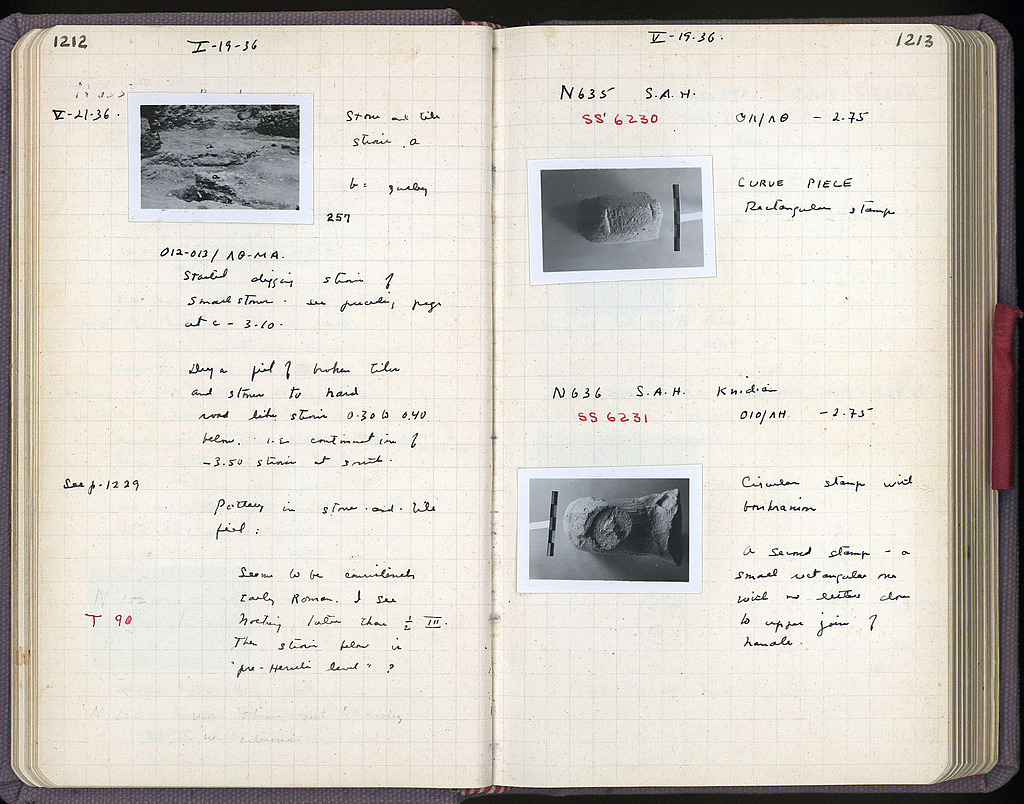 1212
V-19-36
V-21-36.
Stone and tile
strosis a
b = gulley
257
O12-O13/ΛΘ-ΜΑ.
Started digging strosis of
small stones. see preceding page
at c - 3.10.
Dug a fill of broken tiles
and stones to hard
road like strosis 0.30 to 0.40
below. i.e. continuation of
-3.50 strosis at south.
See p. 1229
Pottery in stone-and-tile
fill:
Seems to be consistently
Early Roman. I see
T 90
nothing later than ½ III.
Then strosis below is
"pre-Heruli level"?
1213
V-19-36.
N635 S.A.H.
SS 6230
O11/ΛΘ - 2.75
CURVE PIECE
Rectangular stamp
N636 S.A.H. Knidian
SS 6231
O10/ΛΗ -2.75
Circular stamp with
boukranion
A second stamp - a
small rectangular one
with no letters close
to upper join of
handle.